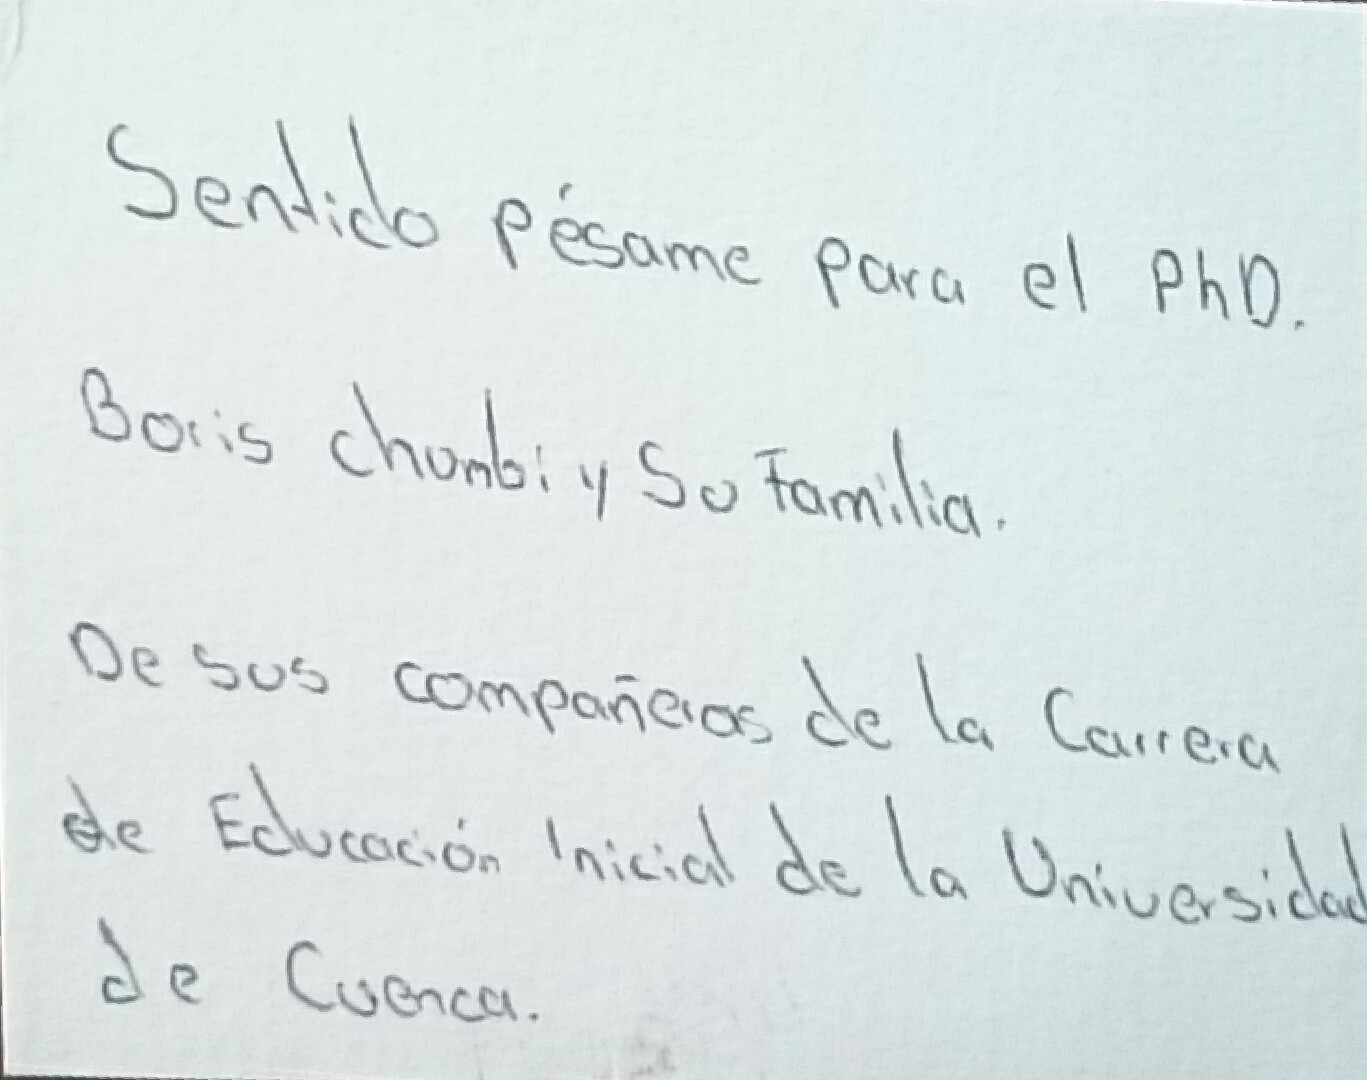 Sentido pésame para el PhD.
Boris chumbi y Su Familia.
De sus compañeros de la Carrera
de Educación Inicial de la Universidad
de Cuenca.